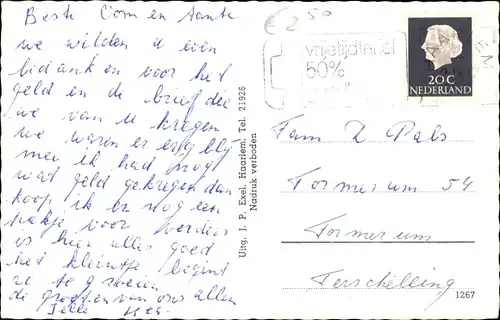 Beste Oom en Tante
we wilden u even
bidanken voor het
geld en de brief die
we van u kregen
we waren er erg blij
mee ik had nogt
wat geld gekregen dan
koop ik er nog een
pakje voor verders
is hier alles goed
het kleintje begint
al te groeien
de groeten van ons allen
Jelle
€ 2,50
vrijetijdtarief
50%
20C
NEDERLAND
Uitg. J. P. Exel, Haarlem, Tel. 21926
Nadruk verboden
Fam Z Pals
Formerum 54
Formerum
Terschelling
1267